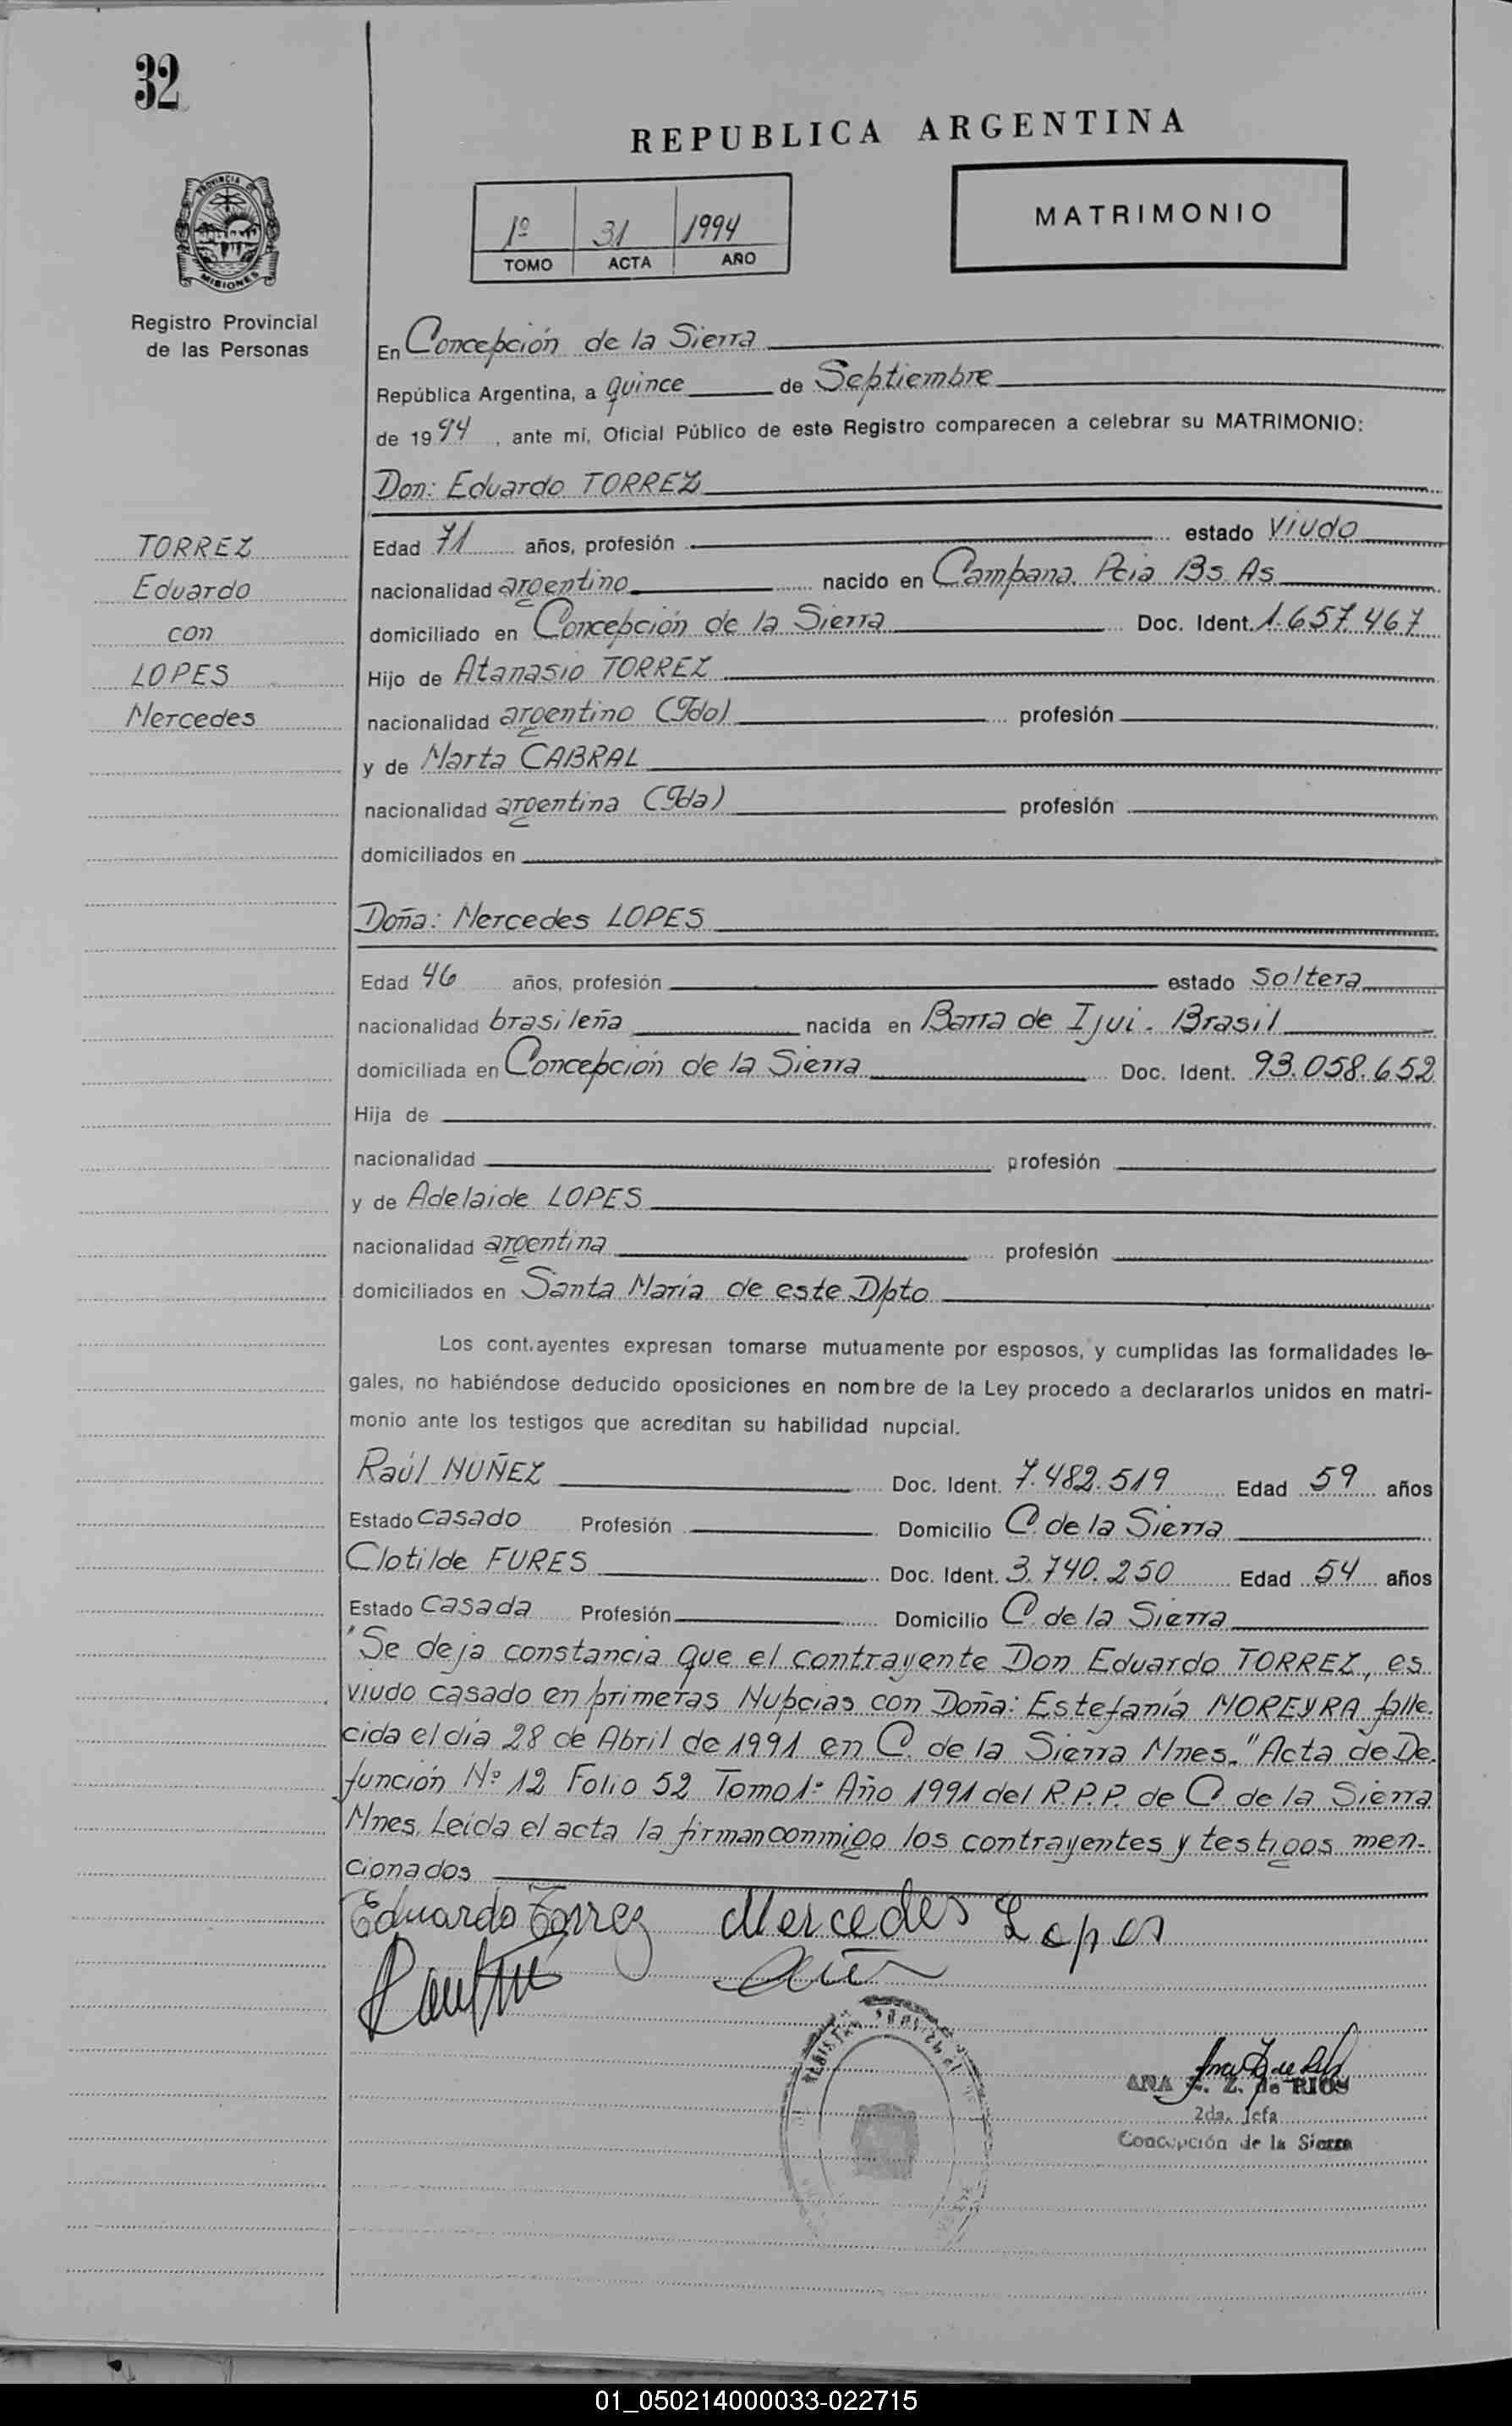 32
REPUBLICA ARGENTINA
PROVINCIA DE
MISIONES
1º 31 1994
TOMO ACTA AÑO
MATRIMONIO
Registro Provincial
de las Personas
En Concepción de la Sierra
República Argentina, a quince de Septiembre
de 1994, ante mí, Oficial Público de este Registro comparecen a celebrar su MATRIMONIO:
Don: Eduardo TORREZ
TORREZ
Eduardo
con
LOPES
Mercedes
Edad 71 años, profesión estado Viudo
nacionalidad argentino nacido en Campana. Pcia Bs As
domiciliado en Concepción de la Sierra Doc. Ident. 1.657.467
Hijo de Atanasio TORREZ
nacionalidad argentino (Fdo) profesión
y de Marta CABRAL
nacionalidad argentina (Fda) profesión
domiciliados en
Doña: Mercedes LOPES
Edad 46 años, profesión estado Soltera
nacionalidad brasileña nacida en Barra de Ijui. Brasil
domiciliada en Concepción de la Sierra Doc. Ident. 93.058.652
Hija de
nacionalidad profesión
y de Adelaide LOPES
nacionalidad argentina profesión
domiciliados en Santa María de este D/pto
Los cont.ayentes expresan tomarse mutuamente por esposos, y cumplidas las formalidades le-
gales, no habiéndose deducido oposiciones en nombre de la Ley procedo a declararlos unidos en matri-
monio ante los testigos que acreditan su habilidad nupcial.
Raúl NUÑEZ Doc. Ident. 7.482.519 Edad 59 años
Estado Casado Profesión Domicilio C. de la Sierra
Clotilde FURES Doc. Ident. 3.740.250 Edad 54 años
Estado Casada Profesión Domicilio C. de la Sierra
"Se deja constancia que el contrayente Don Eduardo TORREZ, es
viudo casado en primeras Nupcias con Doña: Estefanía MOREYRA falle-
cida el día 28 de Abril de 1991 en C. de la Sierra Mnes." Acta de De-
función Nº 12 Folio 52 Tomo 1º Año 1991 del R.P.P. de C. de la Sierra
Mnes. Leida el acta la firman conmigo los contrayentes y testigos men-
cionados
Eduardo Torrez Mercedes Lopes
REGISTRO PROVINCIAL
ANA Z. de RIOS
2da. Jefa
Concepción de la Sierra
01_050214000033-022715